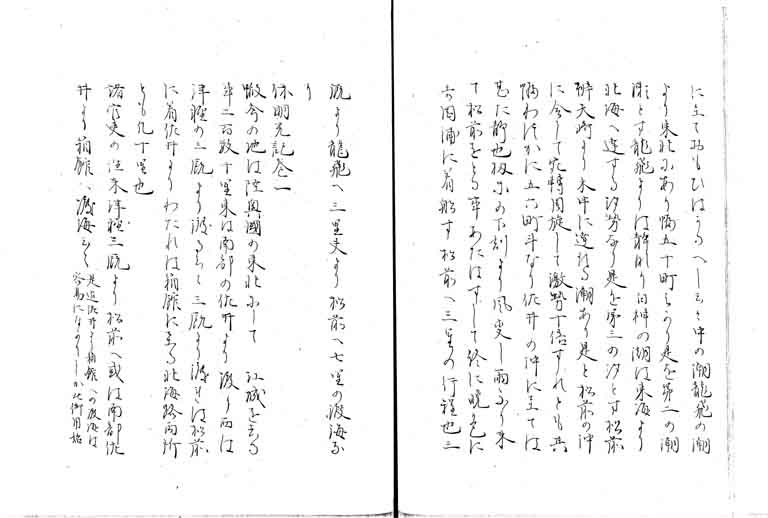 に至ておもひはかるへしと云中の潮龍飛の潮
より東北にあり幅五十町といふ是を第二の潮
瀬とす龍飛よりは静なり白神の潮は東海より
北海へ達する汐勢なり是を第三の汐とす松前
辨天町より木牛に連る潮あり是と松前の沖
に合して宛轉周旋して激勢十倍すれとも其
幅わつかに五六町斗なり佐井の沖に至ては
甚た静也扨の下刻より風変し雨ふり来
て松前をとる事あたはすして終に晩き
吉岡浦に着船す松前へ三里の行程也三
厩より龍飛へ三里夫より松前へ七里の渡海な
り
休明光記巻一
蝦夷の地は陸奥國の東北にして 江城をさる
事二百数十里東は南部の佐井より渡り西は
津軽の三厩より渡ると云三厩より渡れは松前
に着佐井よりわたれは箱館に至る北海路両所
とも凡十里也
諸官吏の往来津軽三厩より松前へ或は南部佐
井より箱館へ渡海して
是迄佐井より箱館への渡海は
容易になかりしか此御用始